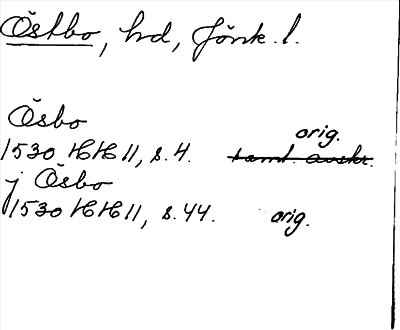 Östbo, hd, Jönk. l.
Ösbo
orig.
1530 HH 11, s. 4. saml. avskr.
j Ösbo
1530 HH 11, s. 44. orig.